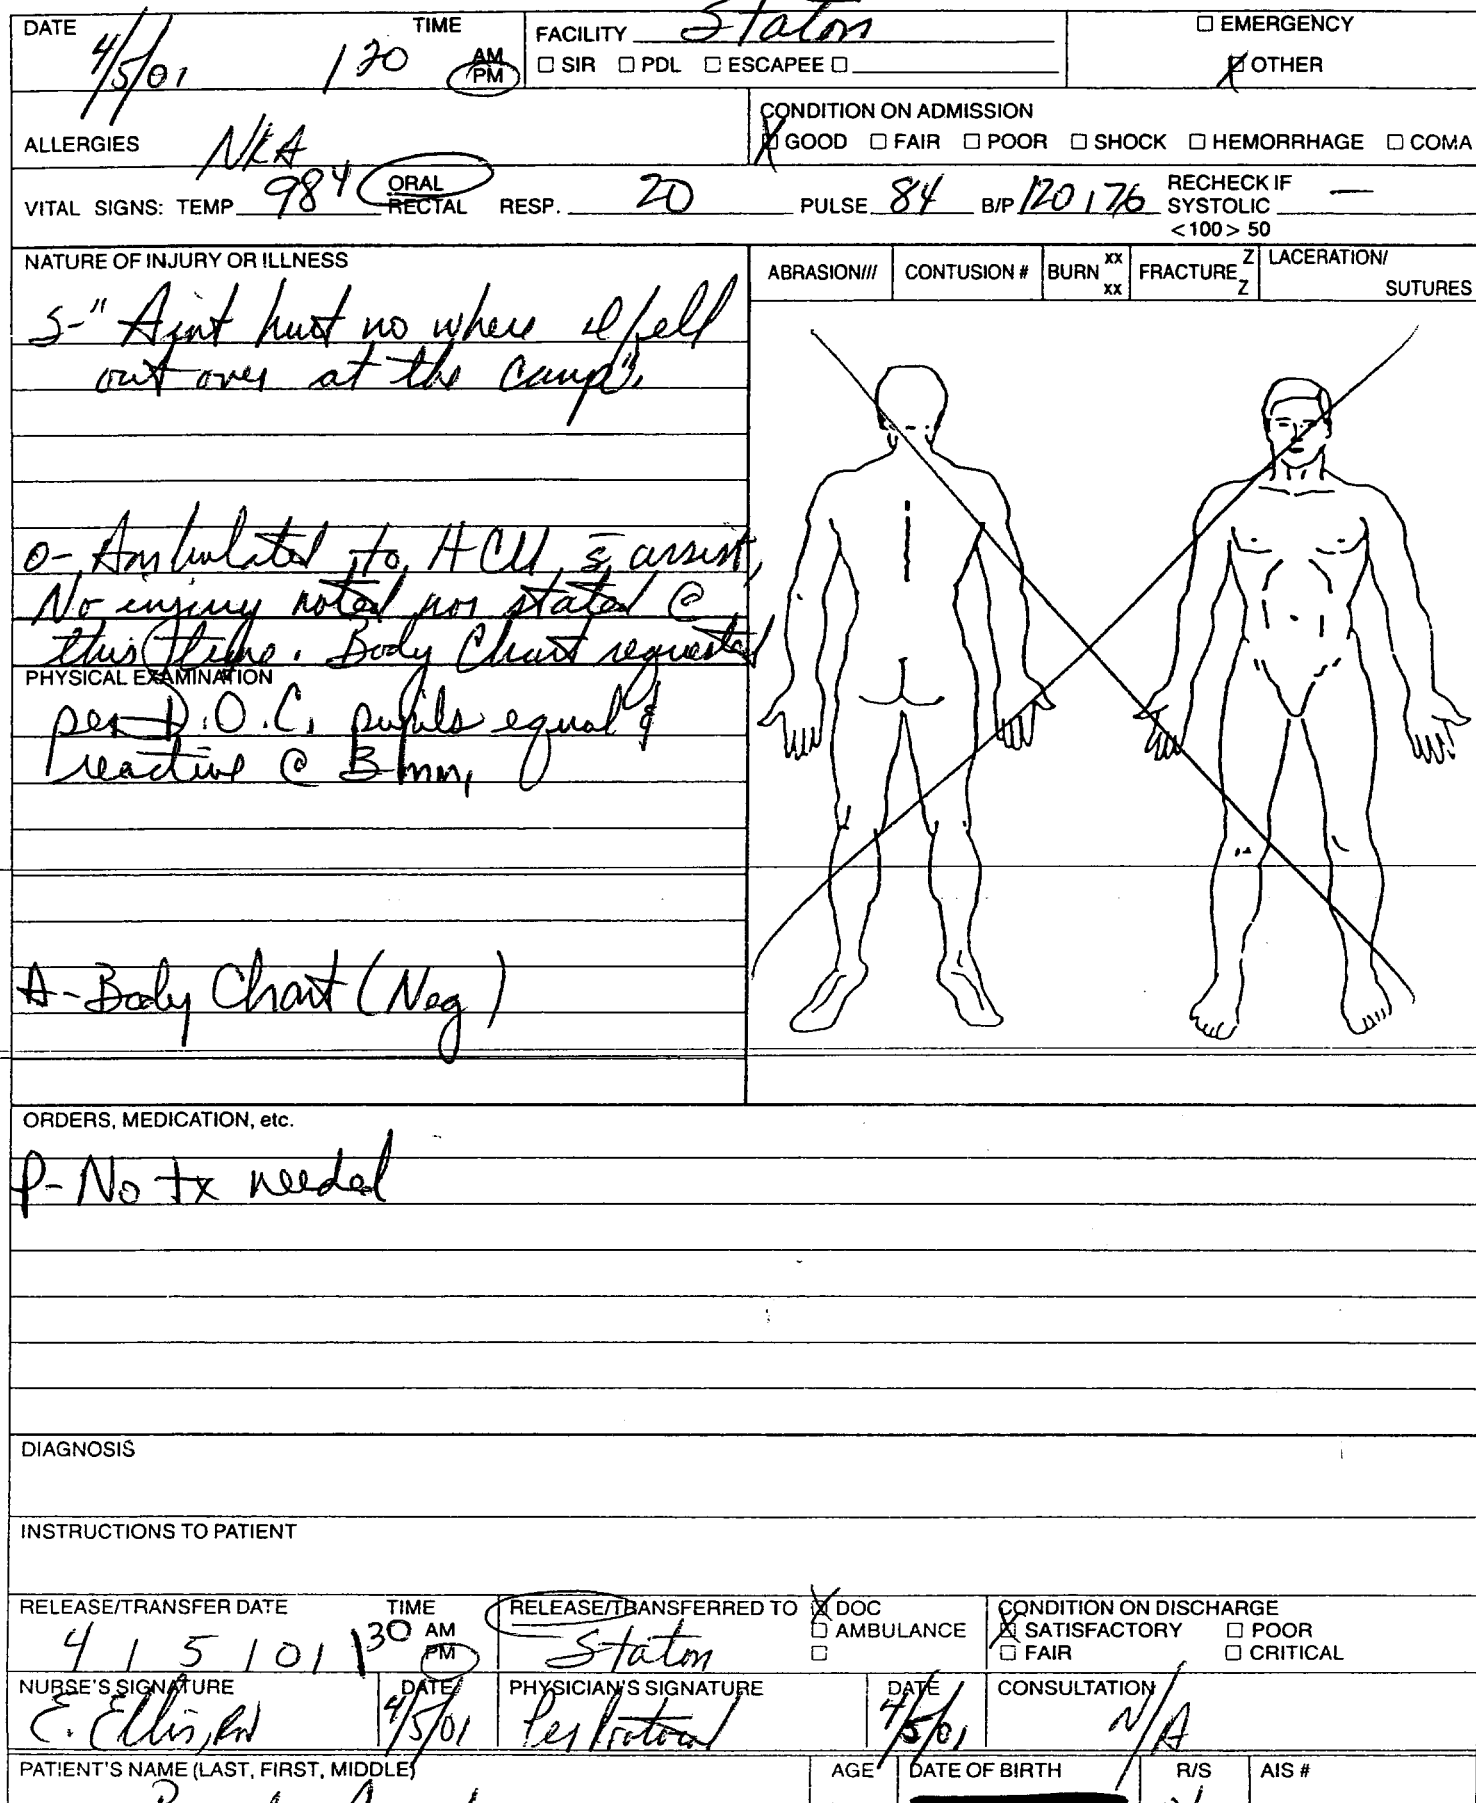 DATE 4/5/01 TIME 1 20 AM PM
FACILITY Staton
☐ SIR ☐ PDL ☐ ESCAPEE ☐
☐ EMERGENCY
☒ OTHER
ALLERGIES NKA
CONDITION ON ADMISSION
☒ GOOD ☐ FAIR ☐ POOR ☐ SHOCK ☐ HEMORRHAGE ☐ COMA
VITAL SIGNS: TEMP 98⁴ ORAL RECTAL RESP. 20 PULSE 84 B/P 120 / 76 RECHECK IF SYSTOLIC <100> 50 —
NATURE OF INJURY OR ILLNESS
ABRASION/// CONTUSION # BURN xx xx FRACTURE Z Z LACERATION/ SUTURES
S-" Aint hurt no where I fell
out over at the camp".
O- Ambulated to HCU s̄ assist,
No injury noted nor stated @
this time. Body Chart requested
PHYSICAL EXAMINATION
per D.O.C. pupils equal &
reactive @ 3 mm,
A- Body Chart (Neg)
ORDERS, MEDICATION, etc.
P- No tx needed
DIAGNOSIS
INSTRUCTIONS TO PATIENT
RELEASE/TRANSFER DATE TIME
4 / 5 / 01 1 30 AM PM
RELEASE/TRANSFERRED TO ☒ DOC
Staton
☐ AMBULANCE
☐
CONDITION ON DISCHARGE
☒ SATISFACTORY ☐ POOR
☐ FAIR ☐ CRITICAL
NURSE'S SIGNATURE DATE PHYSICIAN'S SIGNATURE DATE CONSULTATION
E. Ellis, RN 4/5/01 Per Protocol 4/5/01 N/A
PATIENT'S NAME (LAST, FIRST, MIDDLE) AGE DATE OF BIRTH R/S AIS #